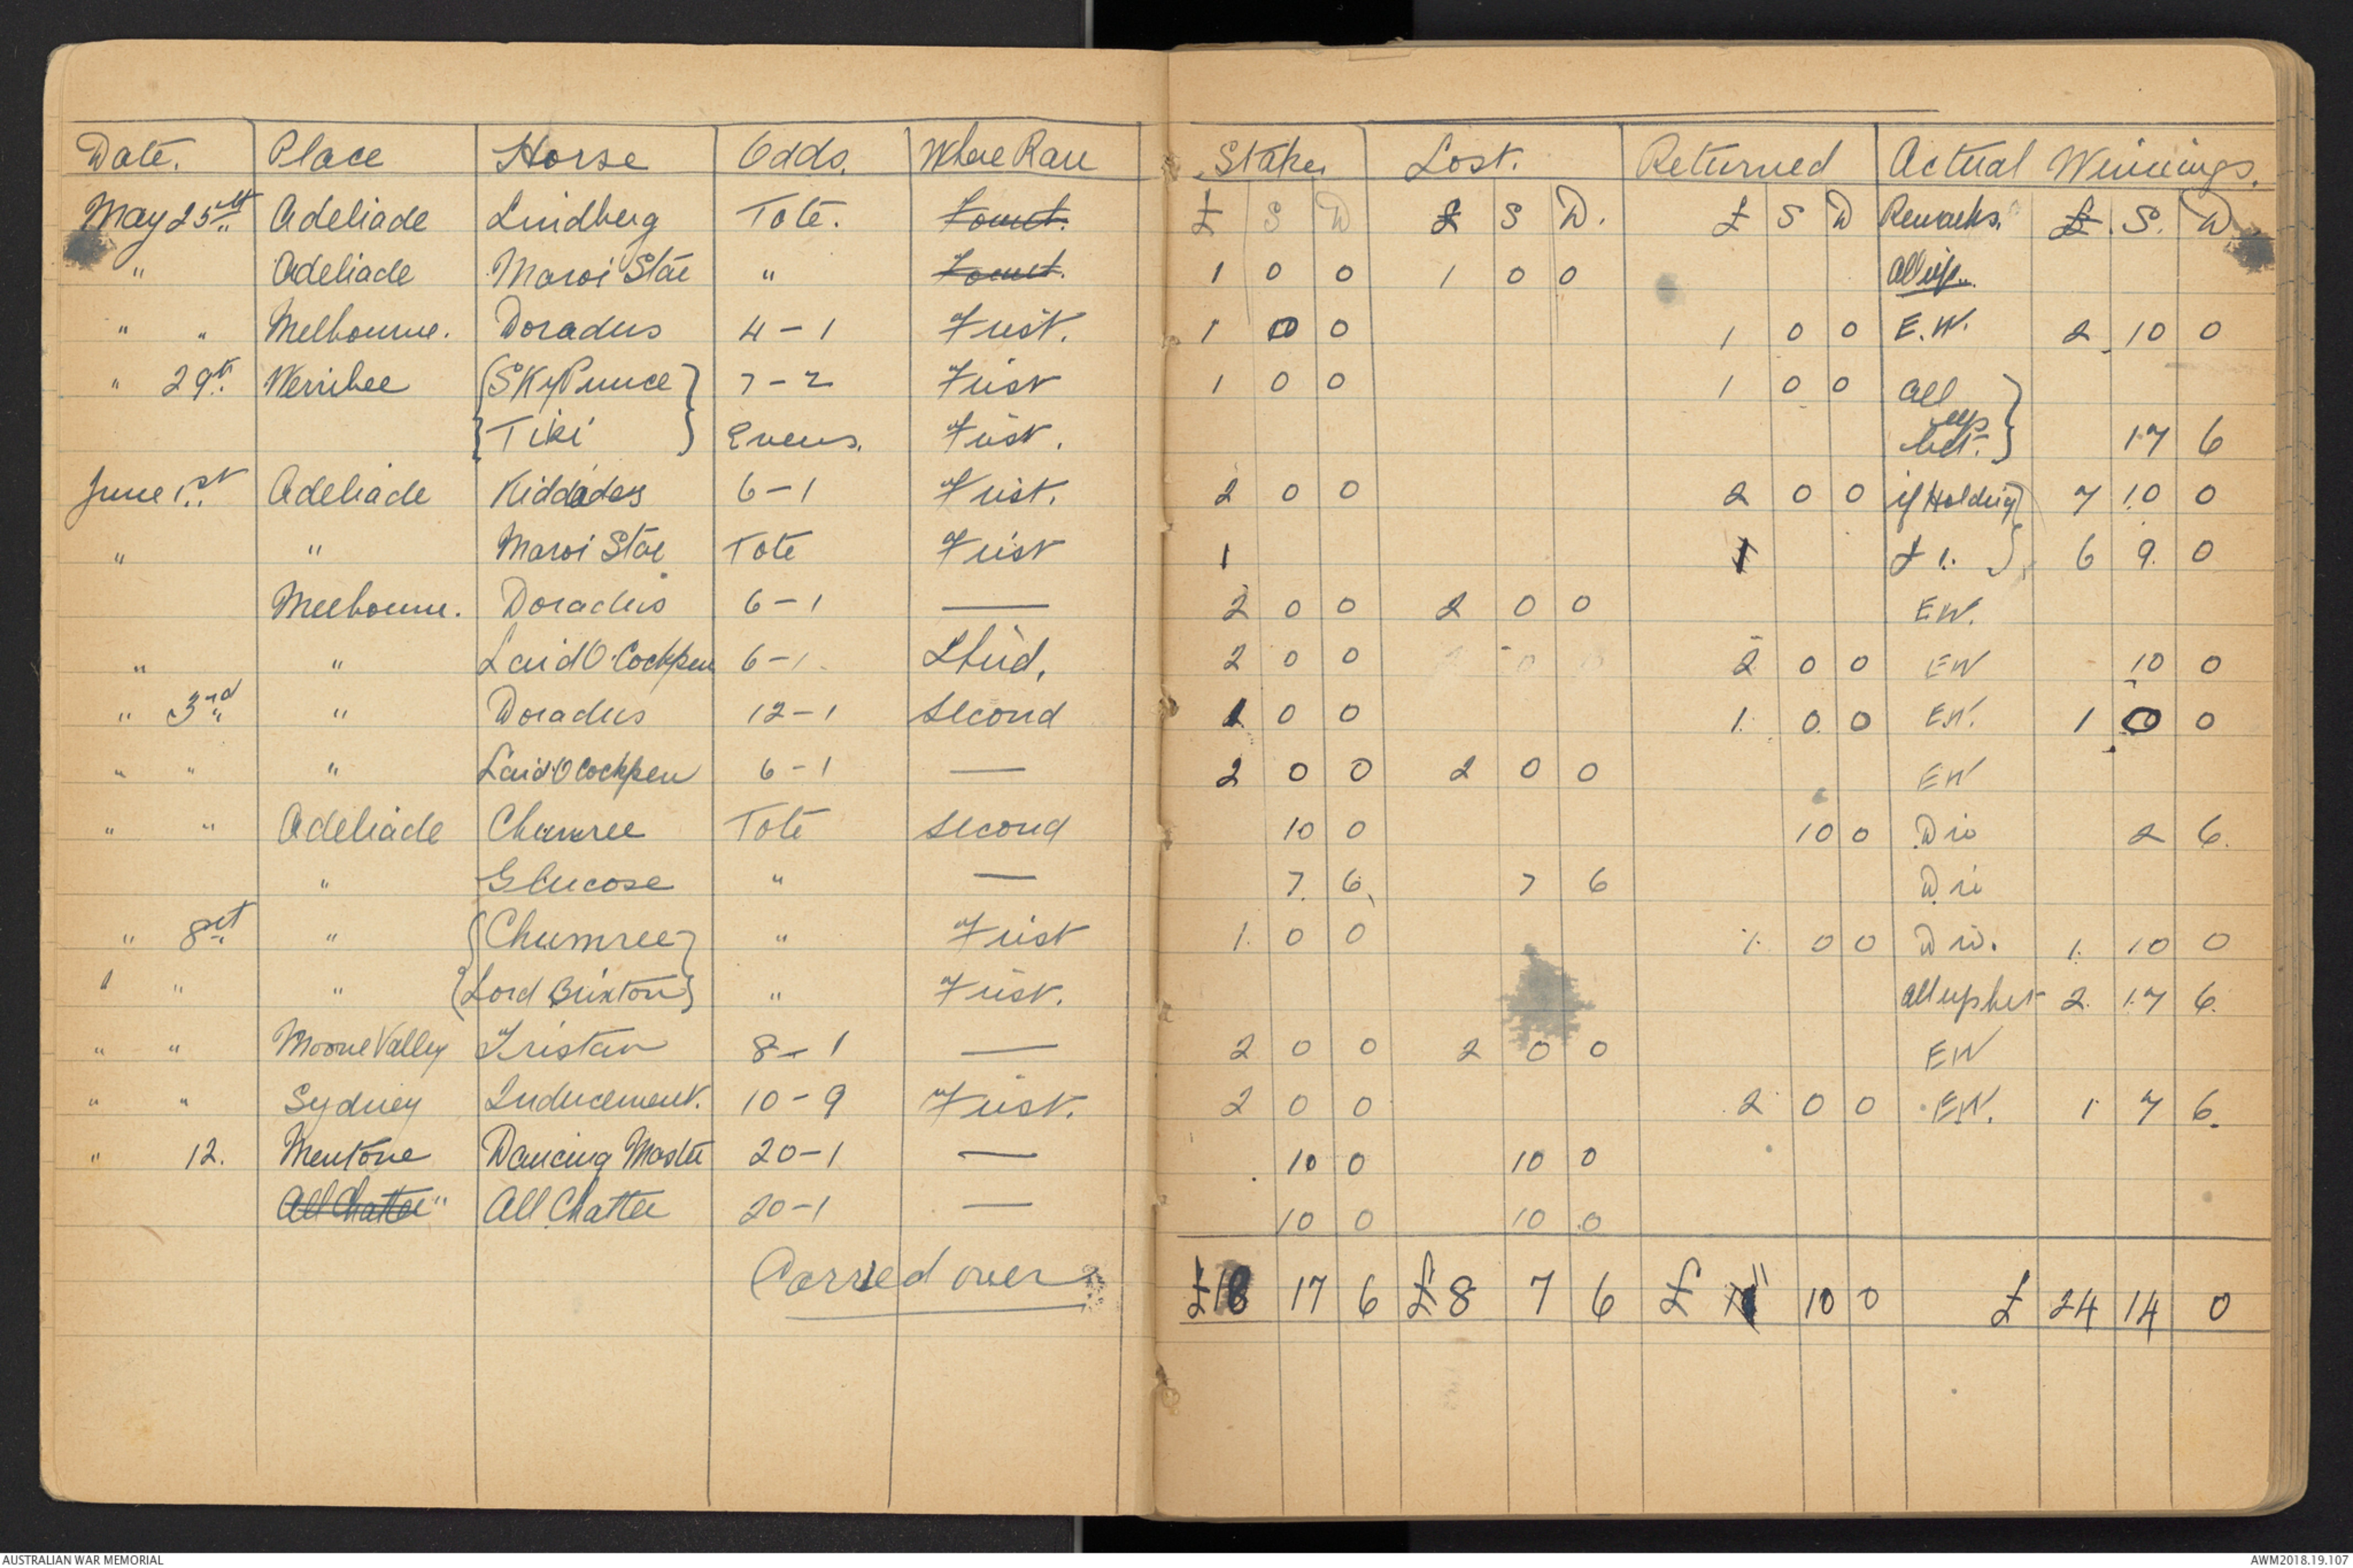 Date. Place Horse Odds. Where Ran Stake. Lost. Returned Actual Winnings.
May 25th Adeliade Lindberg Tote. £ S D £ S D. £ S D Remarks. £. S. D
" Adeliade Maroi Star " 1 0 0 1 0 0 All up.
" " Melbourne. Doradus 4-1 First. 1 0 0 1 0 0 E.W. 2 10 0
" 29th Werribee (Sky Prince) 7-2 First 1 0 0 1 0 0 All
{Tiki} Evens. First. up bet. 17 6
June 1st Adeliade Kiddades 6-1 First. 2 0 0 2 0 0 if Holding 7 10 0
" " Maroi Star Tote First 1 1 £1. 6 9. 0
Melbourne. Doradus 6-1 — 2 0 0 2 0 0 EW.
" " Laird O'Cockpen 6-1. Third. 2 0 0 2 0 0 EW 10 0
" 3rd " Doradus 12-1 Second 1 0 0 1. 0. 0 EW. 1 0 0
" " " Laird O Cockpen 6-1 — 2 0 0 2 0 0 EW
" " Adeliade Chumree Tote Second 10 0 10 0 Div 2 6.
" Glucose " — 7. 6 7 6 Div
" 8th " {Chumree} " First 1. 0 0 1. 0 0 Div. 1. 10 0
" " " {Lord Brixton} " First. All up bet 2. 17 6.
" " Moone Valley Tristan 8-1 — 2 0 0 2 0 0 EW
" " Sydney Inducement. 10-9 First. 2 0 0 2 0 0 EW. 1 7 6.
" 12. Mentone Dancing Master 20-1 — 10 0 10 0
All Chatter " All Chatter 20-1 — 10 0 10 0
Carried over £18 17 6 £8 7 6 £ 11 10 0 £ 24 14 0
AUSTRALIAN WAR MEMORIAL AWM2018.19.107